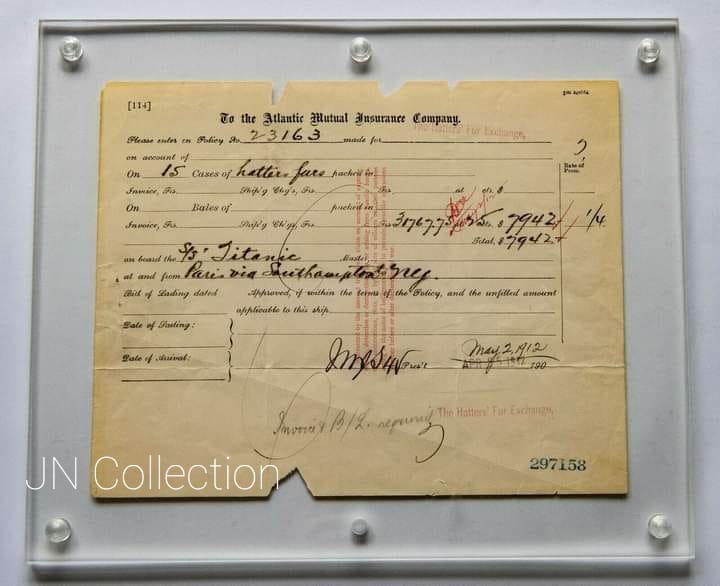 [114]
To the Atlantic Mutual Insurance Company.
Please enter on Policy No. 23163 made for The Hatters' Fur Exchange,
on account of
On 15 Cases of hatters furs packed in
Rate of Prem.
Invoice, Frs. Ship'g Ch'g's, Frs. Frs. at cts. $
On Bales of packed in
Invoice, Frs. Ship'g Ch'gs, Frs. Frs. 30767.75 cts. $ 7942 1/4
Total, $ 7942
on board the S/S' Titanic Master,
at and from Paris via Southampton & N.Y.
Bill of Lading dated Approved, if within the terms of the Policy, and the unfilled amount
applicable to this ship.
Date of Sailing:
Date of Arrival:
Pres't May 2, 1912 190
Invoice & B/L required
The Hatters' Fur Exchange,
297158
JN Collection